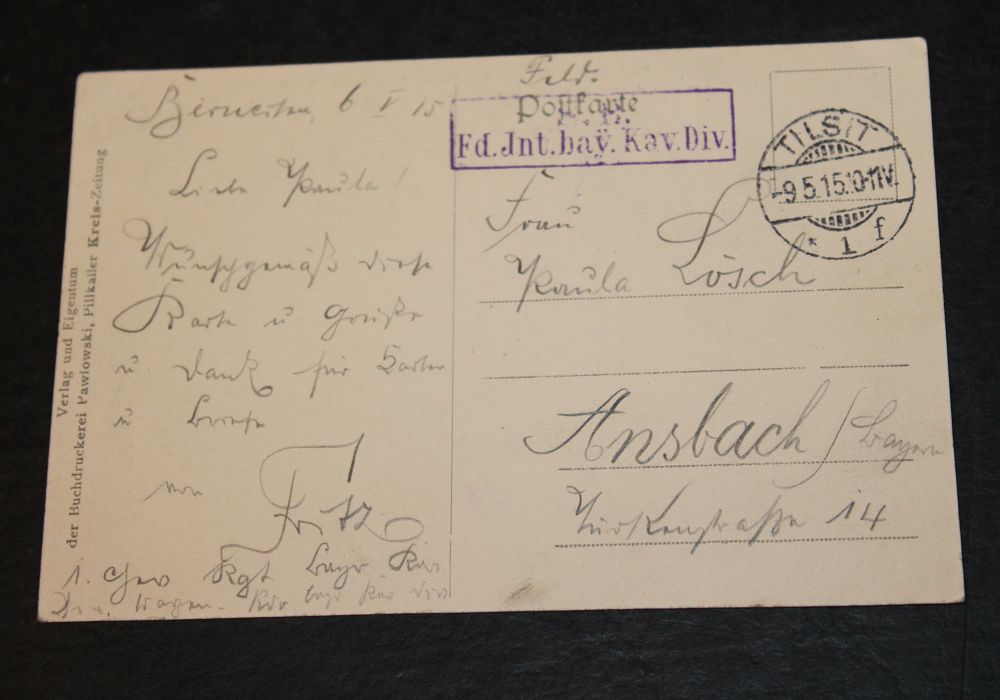 6 V 15
Liebe Paula!
Wunschgemäß diese
Karte u Grüße
u. Dank für Karten
u Briefe
von
Fritz
1. Chev Rgt Bayr
Feld-
Postkarte
Fd.Jnt.bay. Kav.Div.
TILSIT
-9 5.15.10-11V.
* 1 f
Frau
Paula Lösch
Ansbach / Bayern
Türkenstraße 14
Verlag und Eigentum
der Buchdruckerei Pawlowski, Pillkaller Kreis-Zeitung